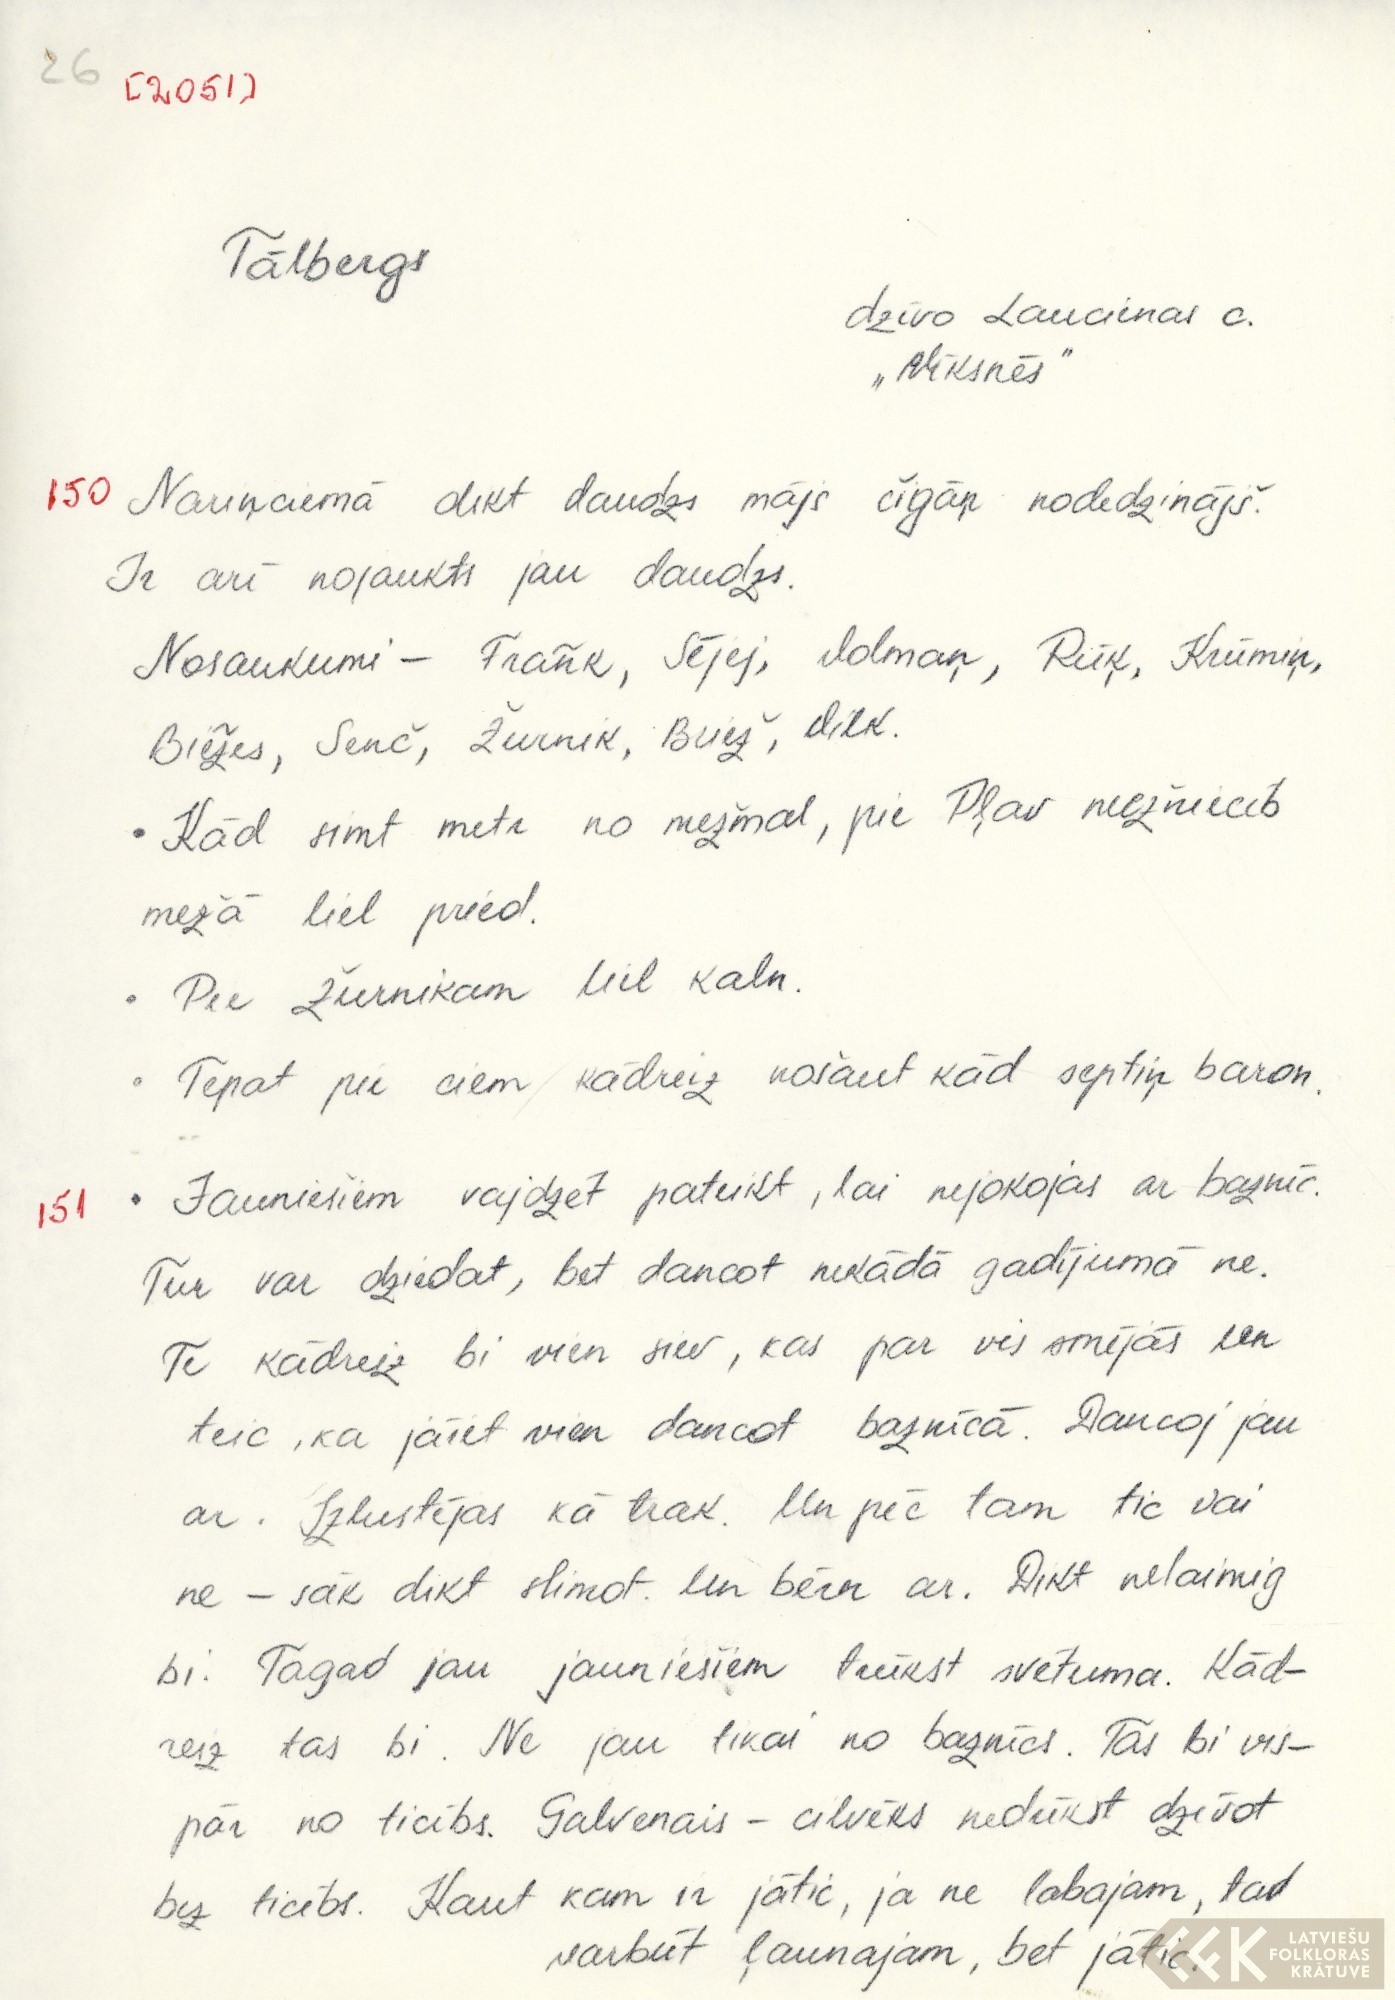 26 [2051]
Tālbergs
dzīvo Laucienas c.
„Vīksnēs"
150 Nariņciemā dikt daudzs mājs čigāņ nodedzinājš.
Ir arī nojaukts jau daudzs.
Nosaukumi – Frañk, Sējej, Dolmaņ, Rūķ, Krūmiņ,
Biẽžes, Senč, Žurnik, Briež, Vilk.
• Kād simt metr no mežmal, pie Pļav
mežā liel pried.
• Pie Žurnikam liel kaln.
• Tepat pie ciem kādreiz nošaut kād septiņ baron.
151 • Jauniešiem vajdzēt pateikt, lai nejokojas ar baznīc.
Tur var dziedat, bet dancot nekādā gadījumā ne.
Te kādreiz bi vien siev, kas par vis smējās un
teic, ka jāiet vien dancot baznīcā. Dancoj jau
ar. Izlustējas kā trak. Un pēc tam tic vai
ne – sāk dikt slimot. Un bērn ar. Dikt nelaimig
bi. Tagad jau jauniešiem trūkst svētuma. Kād-
reiz tas bi. Ne jau tikai no baznīcs. Tas bi vis-
pār no ticībs. Galvenais – cilvēks nedrīkst dzīvot
bez ticībs. Kaut kam ir jātic, ja ne labajam, tad
varbūt ļaunajam, bet jātic.
LATVIEŠU
FOLKLORAS
KRĀTUVE